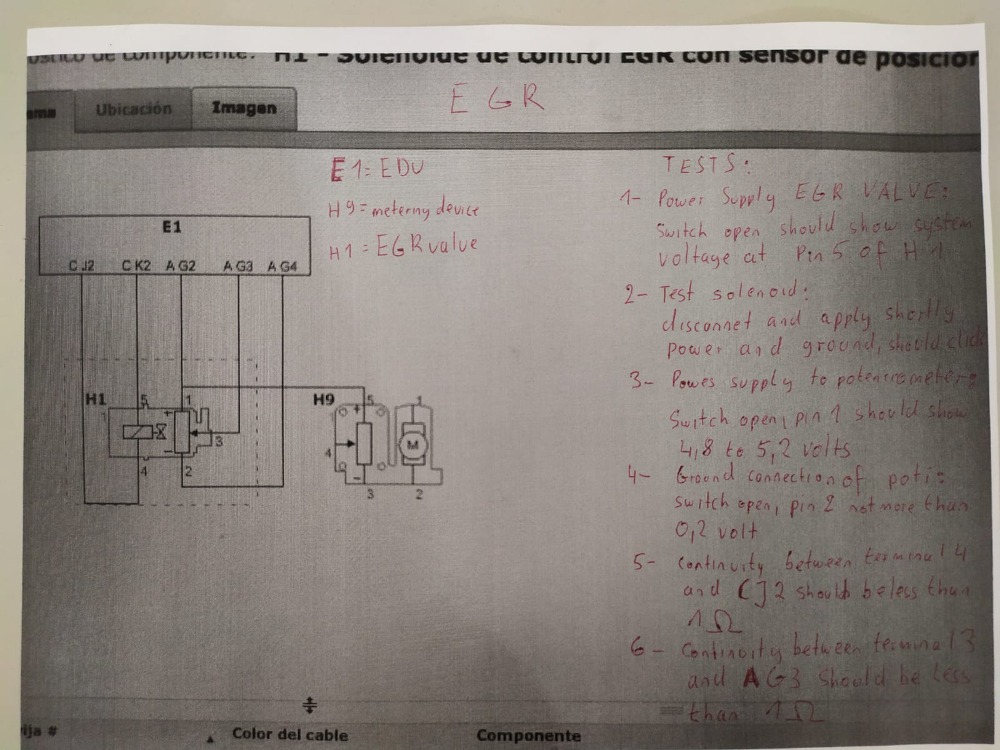 óstico de componente: H1 - Solenoide de control EGR con sensor de posición
ama Ubicación Imagen
EGR
E1= EDU
H9= meterny device
H1 = EGR valve
E1
C J2 C K2 A G2 A G3 A G4
H1
1
5
1
3
4
2
H9
5
1
4
M
3
2
TESTS:
1- Power Supply EGR VALVE:
Switch open should show system
voltage at Pin 5 of H1
2- Test solenoid:
disconnet and apply shortly
power and ground, should click
3- Power supply to potenciometer:
Switch open, pin 1 should show
4,8 to 5,2 volts
4- Ground connection of poti:
switch open, pin 2 not more than
0,2 volt
5- Continuity between terminal 4
and CJ2 should be less than
1Ω
6- Continuity between terminal 3
and AG3 should be less
than 1Ω
ija # Color del cable Componente